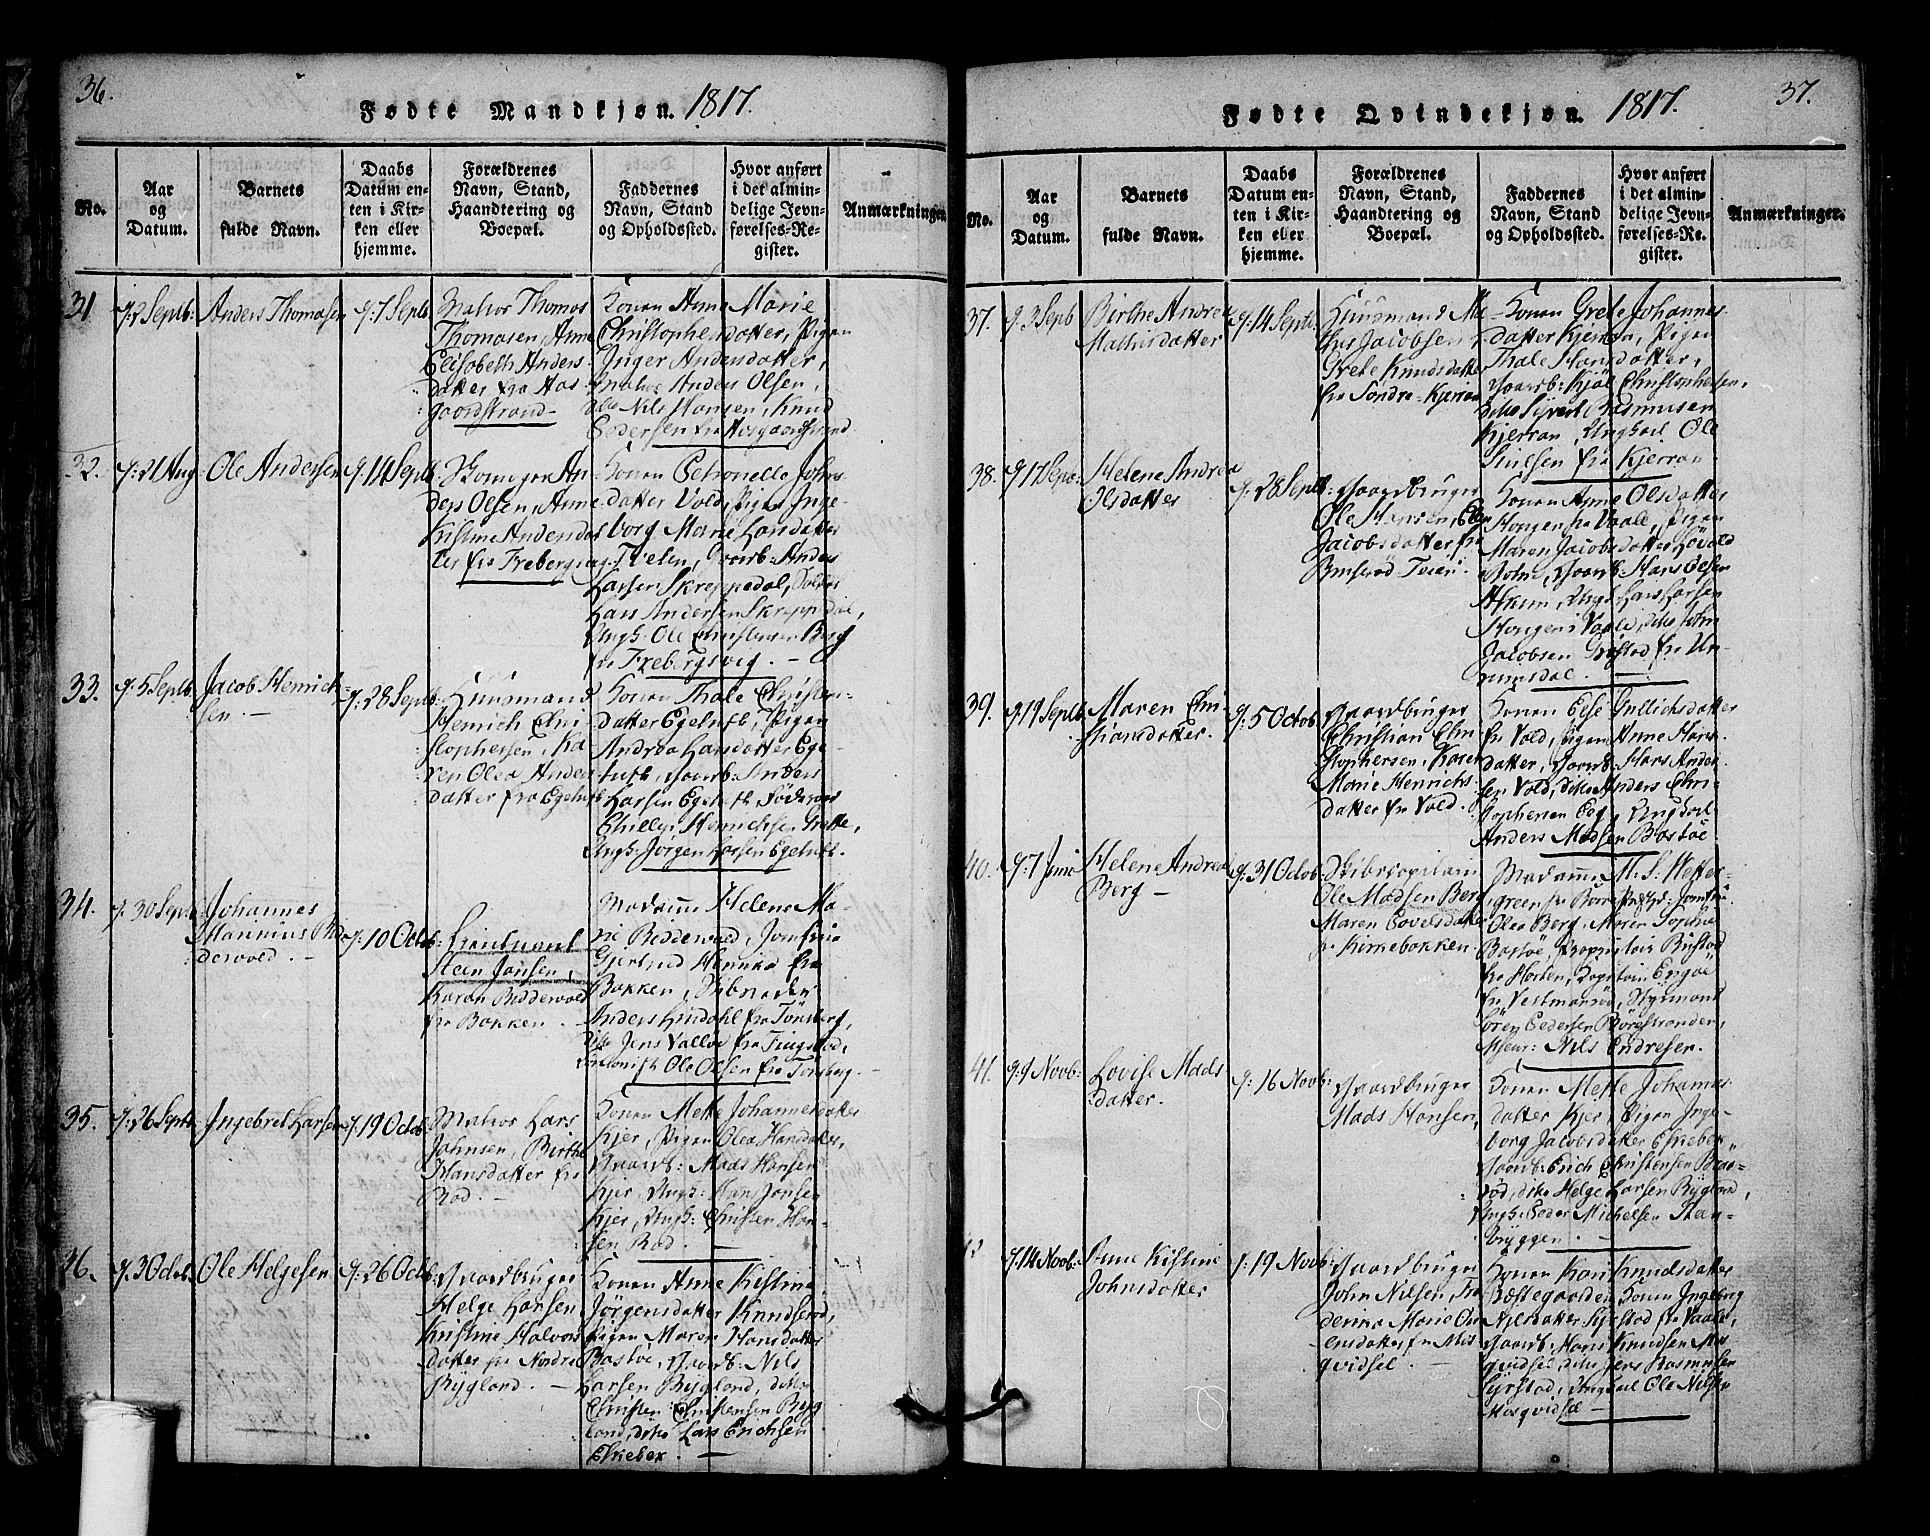 36.
Fødte Mandkjøn. 1817.
No.
Aar og Datum.
Barnets fulde Navn.
Daabs Datum enten i Kirken eller hjemme.
Forældrenes Navn, Stand, Haandtering og Boepæl.
Faddernes Navn, Stand og Opholdssted.
Hvor anført i det almindelige Jevnførelses-Register.
Anmærkninger.
31
Anders Thomasen
d: 7 Septb:
Matros Thomas
Thomasen, Anne
Elisabeth Anders
datter fra Aas
gaardstrand
Konen Anne Marie
Christophersdatter, Pigen
Inger Andersdatter,
Matros Anders Olsen,
Nils Hansen, Knud
Pedersen fra Aasgaardstrand
32.
d: 21 Aug
Ole Andersen
d: 14 Septb:
Anders Olsen, Anne
Kistine Andersdat
ter fra Frebergsvig
Konen Petronelle Johns
datter Vold, Pigen Inge
borg Marie Larsdatter
Tvelen, Gaarb: Anders
Larsen Skreppedal, Soldat
Lars Andersen Skreppedal,
Ungk: Ole Christensen Berg
fra Frebergsvig. —
33.
d: 5 Septb:
Jacob Henrich-
sen. —
d: 28 Septb:
Huusmand
Henrich Chri
stophersen, Ka
ren Olea Anders
datter fra Egeluft
Konen Thale Christens
datter Egeluft, Pigen
Andrea Larsdatter Ege
luft, Gaarb: Anders
Larsen Egeluft
Henrichsen
Ungk: Jørgen Larsen Egeluft.
34.
d: 30 Septb:
Johannes
Bed
dewold. —
d: 10 Octob:
Lieutnant
Steen Jonsen,
Karen Beddewold
fra Bakken. —
Madame Helene Ma-
rie Beddewold, Jomfrue
Gjertrud Henrika fra
Bakken,
Anders Lindahl fra Tønsberg,
dito Jens Valløe fra
Ole Olsen fra Tønsberg. —
35.
d: 26 Septb:
Ingebret Larsen
d: 19 Octob:
Matros Lars
Johnsen, Birthe
Hansdatter fra
Rød. —
Konen Mette Johannesdatter
Kjer, Pigen Olea Hansdatter,
Gaarb: Mads Hansen
Kjer, Ungk: Hans Jonsen
Kjer, Ungk: Christen Han-
sen Rød. —
36.
d: 3 Octob:
Ole Helgesen
d: 26 Octob:
Gaardbruger
Helge Larsen,
Kistine Halvors
datter fra Nordre
Rygland. —
Konen Anne Kistine
Jørgensdatter Knudsrød,
Pigen Maren Hansdatter
Bastøe, Gaarb: Nils
Larsen Rygland, dito
Christen Christensen Ryg
land, dito Lars Erichsen
Eskebek. —
37.
Fødte Qvindekjøn. 1817.
No.
Aar og Datum.
Barnets fulde Navn.
Daabs Datum enten i Kirken eller hjemme.
Forældrenes Navn, Stand, Haandtering og Boepæl.
Faddernes Navn, Stand og Opholdssted.
Hvor anført i det almindelige Jevnførelses-Register.
Anmærkninger.
37.
d: 3 Septb
Birthe Andrea
Mathisdatter
d: 14 Septb:
Huusmand Ma
this Jacobsen,
Grete Knudsdatter
fra Søndre-Kjerran
Konen Grete Johannes
datter Kjerran, Pigen
Thale Hansdatter,
Gaarb: Kjøl Christophersen,
dito Sivert Rasmusen
Kjerran, Ungkarl Ole
fra Kjerran
38.
d: 17 Septb:
Helene Andrea
Olsdatter
d: 28 Septb:
Gaardbruger
Ole Hansen, Elen
Jacobsdatter fra
Konen Anne Olsdatter
Hougen fra Vaale, Pigen
Maren Jacobsdatter
Gaarb: Hans Olsen
Askum, Ungk: Lars Larsen
Hougen i Vaale, dito John
Jacobsen fra Un-
rumsdal. —
39.
d: 19 Septb:
Maren Chri-
stiansdatter.
d: 5 Octob:
Gaardbruger
Christian Chri
stophersen, Karen
Marie Henrichs
datter fra Vold.
Konen Else Gullichsdatter
fra Vold, Pigen Anne Hans
datter, Gaarb: Hans Ander
sen Vold, dito Anders Chri
stophersen, Ungkarl
Anders Madsen Bastøe.
40.
d: 7 Juni
Helene Andrea
Berg —
d: 31 Octob:
Skibscapitain
Ole Madsen Berg
Maren Povelsdatter
fr Kirkebakken.
Madame M. S. Wetter-
green fra Borre Jomfrue
Olea Berg, Maren Sophie
Bastøe, Proprietair Bustad
fra Horten, Capitain Engøe
fra Vestmansrød, Styrmand
Søren Pedersen Borrestranden,
Nils Endresen.
41.
d: 9 Novb:
Lovise Mads
datter.
d: 16 Novb:
Gaardbruger
Mads Hansen,
Konen Mette Johannes
datter Kjer, Pigen Inge-
borg Jacobsdatter Eskebek
Gaarb: Erich Christensen
dito Helge Larsen Rygland,
Ungk: Peder Michelsen
bryggen. —
d: 14 Novb:
Anne Kistine
Johnsdatter
d: 19 Novb:
Gaardbruger
John Nilsen, Fre
derikka Marie Chri
stensdatter fra Mos
qvidsel. —
Konen Kari Knudsdatter
Bæssegaarden, Konen Ingeborg
Nilsdatter Syrstad fra Vaale,
Gaarb: Hans Knudsen Mos
qvidsel, dito Jens Rasmusen
Syrstad, Ungkarl Ole Nilsen
Mosqvidsel —